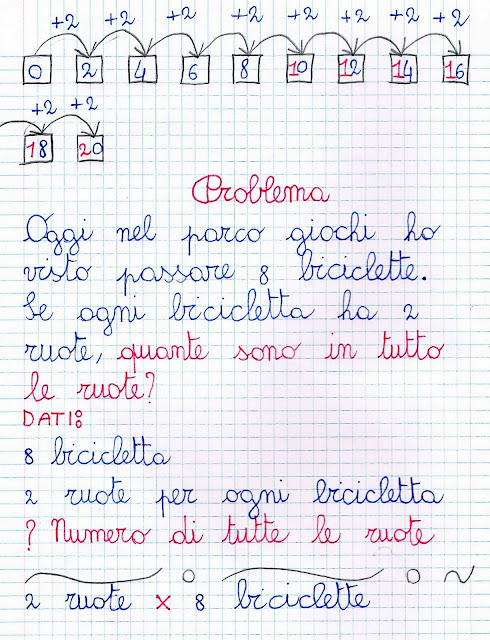 +2 +2 +2 +2 +2 +2 +2 +2
0 2 4 6 8 10 12 14 16
+2 +2
18 20
Problema
Oggi nel parco giochi ho
visto passare 8 biciclette.
Se ogni bicicletta ha 2
ruote, quante sono in tutto
le ruote?
DATI:
8 bicicletta
2 ruote per ogni bicicletta
? Numero di tutte le ruote
2 ruote x 8 biciclette